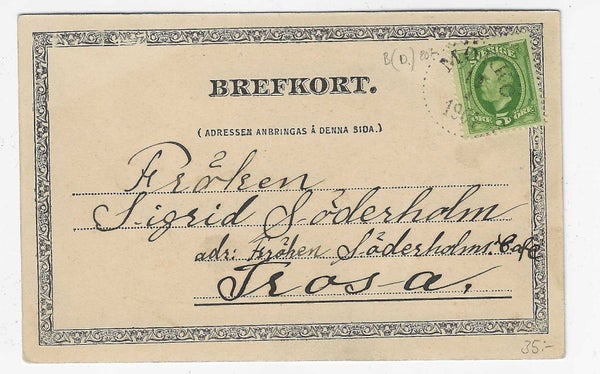 SVERIGE
5 ÖRE
BREFKORT.
(ADRESSEN ANBRINGAS Å DENNA SIDA.)
Fröken
Sigrid Söderholm
adr: Fröken Söderholms Café
Trosa.
35:-